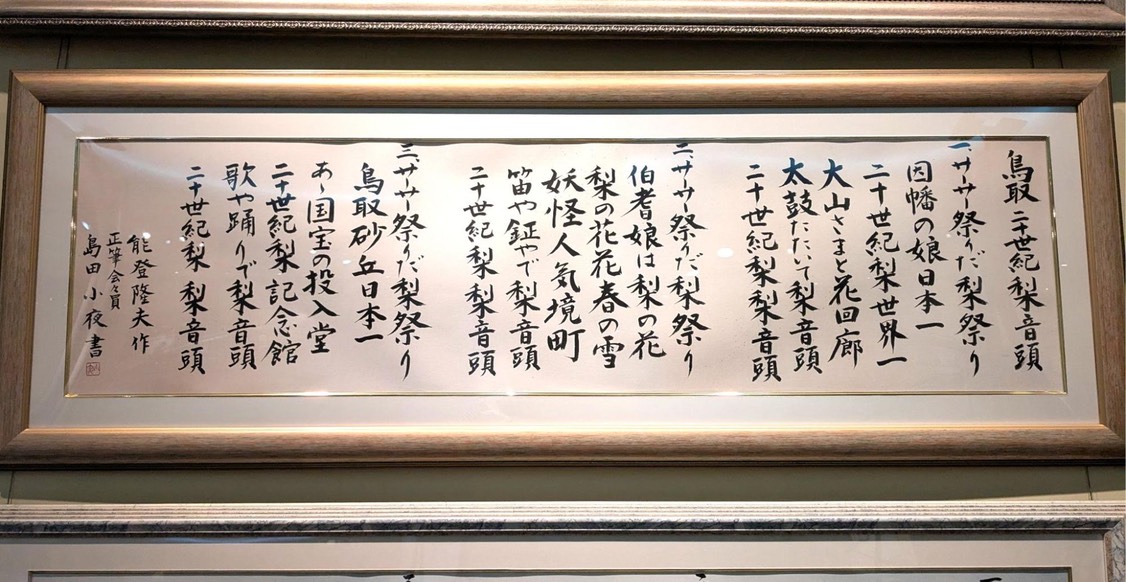 鳥取二十世紀梨音頭
一、サーサー祭りだ梨祭り
因幡の娘日本一
二十世紀梨世界一
大山さまと花回廊
太鼓たたいて梨音頭
二十世紀梨梨音頭
二、サーサー祭りだ梨祭り
伯耆娘は梨の花
梨の花花春の雪
妖怪人気境町
笛や鉦やで梨音頭
二十世紀梨梨音頭
三、サーサー祭りだ梨祭り
鳥取砂丘日本一
あゝ国宝の投入堂
二十世紀梨記念館
歌や踊りで梨音頭
二十世紀梨梨音頭
能登隆夫作
正筆会々員
島田小夜書